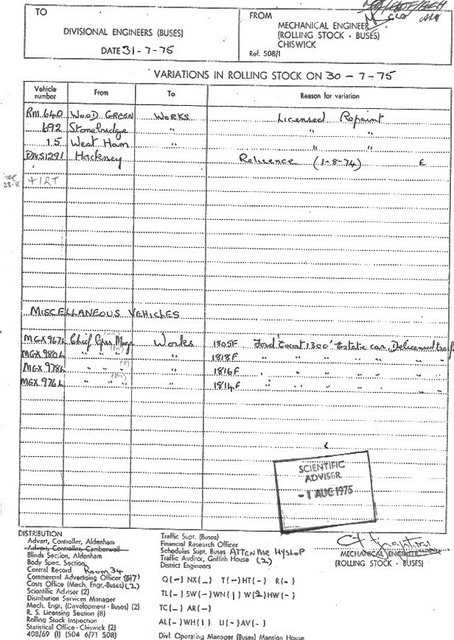 TO
DIVISIONAL ENGINEERS (BUSES)
DATE 31-7-75
FROM
MECHANICAL ENGINEER
(ROLLING STOCK - BUSES)
CHISWICK
Ref. 508/1
VARIATIONS IN ROLLING STOCK ON 30-7-75
Vehicle number From To Reason for variation
RM.640 WOOD GREEN WORKS Licensed Repaint
692 Stonebridge " " "
15 West Ham " " "
DMS1291 Hackney Relicence (1-8-74) E
412T
MISCELLANEOUS VEHICLES
MGX967L Chief Ops Mgr Works 1805F Ford Escort 1300 Estate car,
MGX980L " " " " 1818F " " " " "
MGX978L " " " " 1816F " " " " "
MGX976L " " " " 1814F " " " " "
SCIENTIFIC
ADVISER
-1 AUG 1975
MECHANICAL ENGINEER
(ROLLING STOCK - BUSES)
DISTRIBUTION
Advert, Controller, Aldenham
Advert, Controller, Camberwell
Blinds Section, Aldenham
Body Spec. Section
Central Record Room 34
Commercial Advertising Officer (BH7)
Costs Office (Mech. Engr.-Buses) (2)
Scientific Adviser
Distribution Services Manager
Mech. Engr. (Development - Buses) (2)
R. S. Licensing Section (8)
Rolling Stock Inspection
Statistical Office - Chiswick (2)
408/69 (1) (504 6/71 508)
Traffic Supt. (Buses)
Financial Research Officer
Schedules Supt. Buses ATTEN MR HYSLOP
Traffic Auditor, Griffith House (2)
District Engineers
Q(-) NX(_) T(-) HT(-) R(-)
TL(-) SW(-) WN(1) W(2) HW(-)
TC(_) AR(-)
AL(-) WH(1) U(-) AV(-)
Divl. Operating Manager (Buses) Mansion House